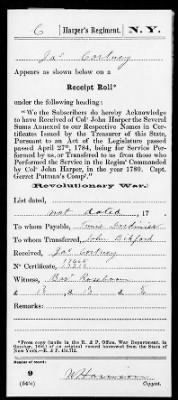 C | Harper's Regiment. | N. Y.
Jas Cortney
Appears as shown below on a
Receipt Roll*
under the following heading:
"We the Subscribers do hereby Acknowledge
to have Received of Col John Harper the Several
Sums Annexed to our Respective Names in Cer-
tificates Issued by the Treasurer of this State,
Pursuant to an Act of the Legislature passed
passed April 27th, 1784, being for Service Per-
formed by us, or Transfered to us from those who
Performed the Service in the Regim' Commanded
by Col John Harper, in the year 1780. Capt.
Gerret Putman's Comp."
Revolutionary War.
List dated,
not dated, 17
To whom Payable,
To whom Transferred, John
Received, Jas Cortney
No Certificate,
Witness,
Remarks:
*From copy (made in the R. & P. Office, War Department, in
of original record borrowed from the State of
New York.—R. & P.
Number of record:
9
Copyist.